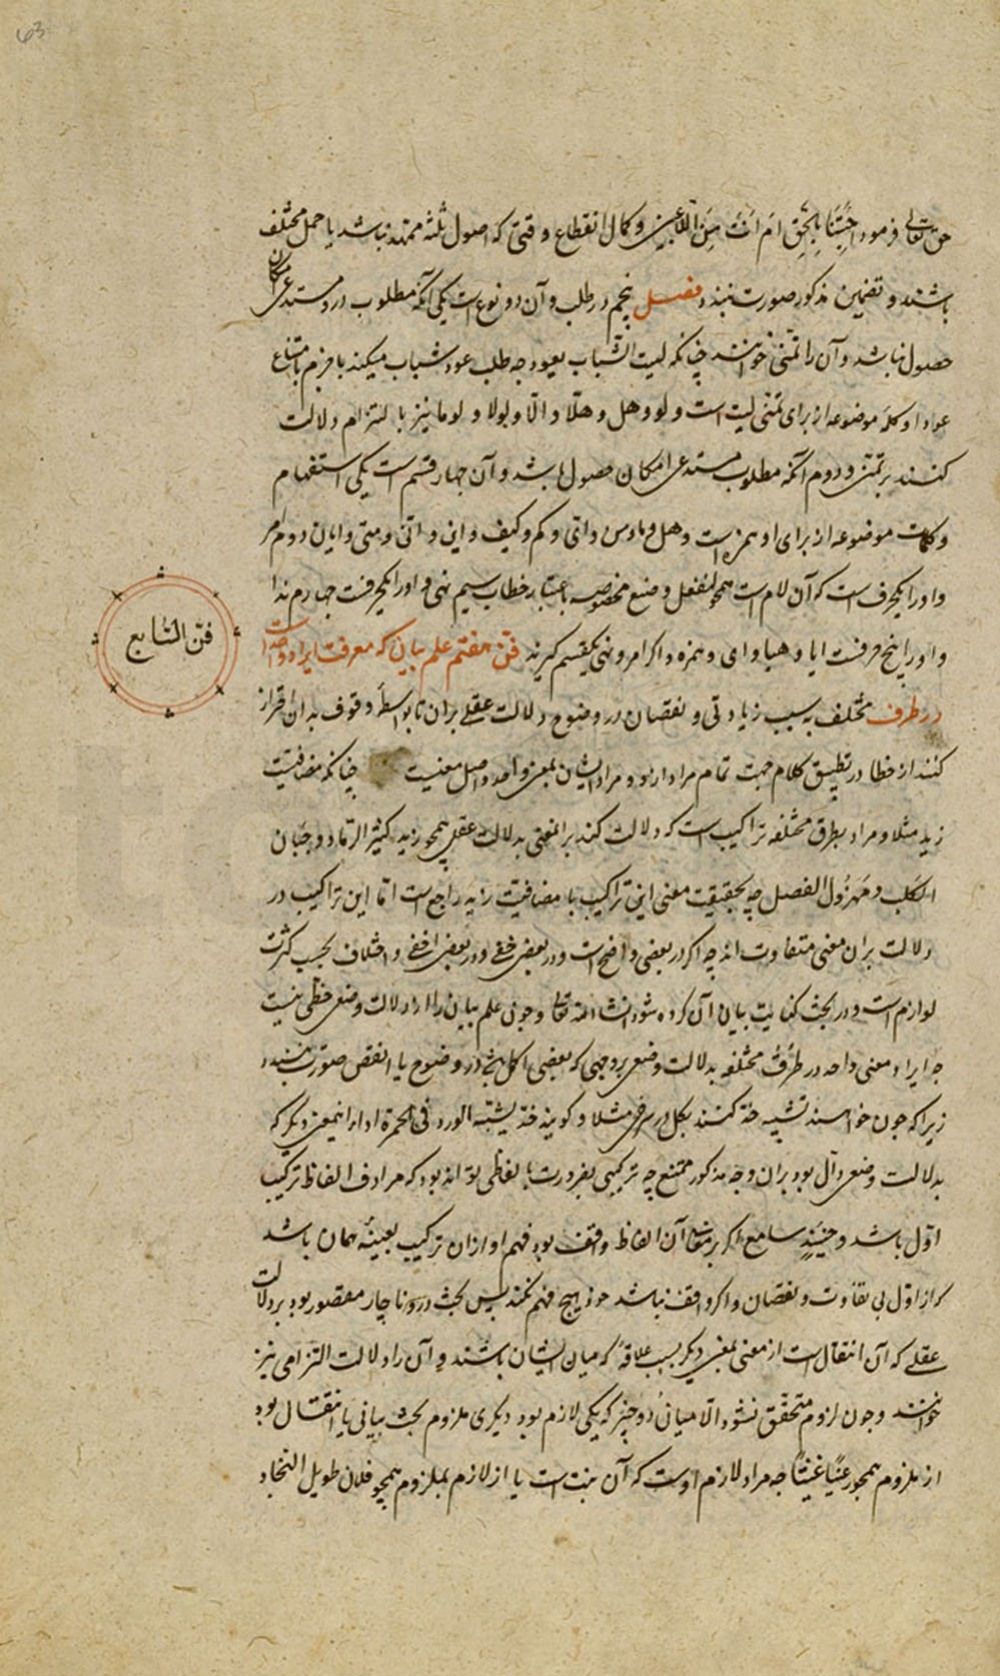 63
حق تعالی فرمود اجئتنا بالحق ام انت من اللاعبین و کمال انقطاع وقتی که اصول ثلثه ممهد نباشد یا جمل مختلف
باشند و تضمین مذکور صورت نبندد فصل پنجم در طلب و آن دو نوع است یکی آنکه مطلوب درو مستدعی امکان
حصول نباشد و آن را تمنی خوانند چنانکه لیت الشباب یعود چه طلب عود شباب میکند با جزم بامتناع
عود او و کلمه موضوعه از برای تمنی لیت است و لو و هل و هلا و الا و لولا و لوما نیز بالتزام دلالت
کنند بر تمنی و دوم آنکه مطلوب مستدعی امکان حصول باشد و آن چهار قسم است یکی استفهام
و کلمات موضوعه از برای او همزه است و هل و ما و من و ای و کم و کیف و این و انی و متی و ایان دوم امر
و او را یکحرف است که آن لام است همچو لیفعل و صنع مخصوصه باعتبار خطاب سیم نهی و او را یکحرفست چهارم ندا
و او را پنج حرفست ایا و هیا و ای و همزه و اکر امر و نهی یکقسم گیرند فن هفتم علم بیان که معرفت ایراد واحد است
در طرق مختلف به سبب زیادتی و نقصان در وضوح دلالت عقلی بران تا بواسطه وقوف بدان احتراز
کنند از خطا در تطبیق کلام جهت تمام مراد او و مراد ایشان بمعنی واحد اصل معنیست چنانکه مضافیت
زید مثلا و مراد بطرق مختلفه تراکیب است که دلالت کند بر المعنی بدلالت عقلی همچو زید کثیر الرماد و جبان
الکلب و مهزول الفصیل چه بحقیقت معنی این تراکیب با مضافیت زید راجع است اما این تراکیب در
دلالت بران معنی متفاوت اند چه اکر در بعضی واضح است و در بعضی خفی و در بعضی اخفی و اختلاف بحسب کثرت
لوازم است و در بحث کنایت بیان آن کرده شود انشاء الله تعالی و چون علم بیان را از دلالت وضعی حظی نیست
چه ایراد معنی واحد در طرق مختلفه بدلالت وضعی بر وجهی که بعضی اکمل بود در وضوح یا انقص صورت نبندد
زیرا که چون خواهند تشبیه خد کنند بکل در سرخی مثلا و گویند خد یشبه الورد فی الحمرة ادای اینمعنی دیگر که
بدلالت وضعی دال بود بران وجه مذکور ممتنع چه ترکیبی بضرورت بالفاظی تواند بود که مرادف الفاظ ترکیب
اول باشد و حینئذ سامع اکر بر معانی آن الفاظ واقف بود فهم او ازان ترکیب بعینه همان باشد
کز اول بی تفاوت و نقصان و اکر واقف نباشد خود هیچ فهم نکند پس بحث درو ناچار مقصور بود بر دلالت
عقلی که آن انتقال است از معنی بمعنی دیگر بسبب علاقه که میان ایشان باشند و آن را دلالت التزامی نیز
خوانند و چون لزوم متحقق نشود الا میان دو چیز که یکی لازم بود دیگری ملزوم بحث بیانی یا انتقال بود
از ملزوم همچو رعینا غیثا چه مراد لازم اوست که آن نبت است یا از لازم بملزوم همچو فلان طویل النجاد
فن السابع